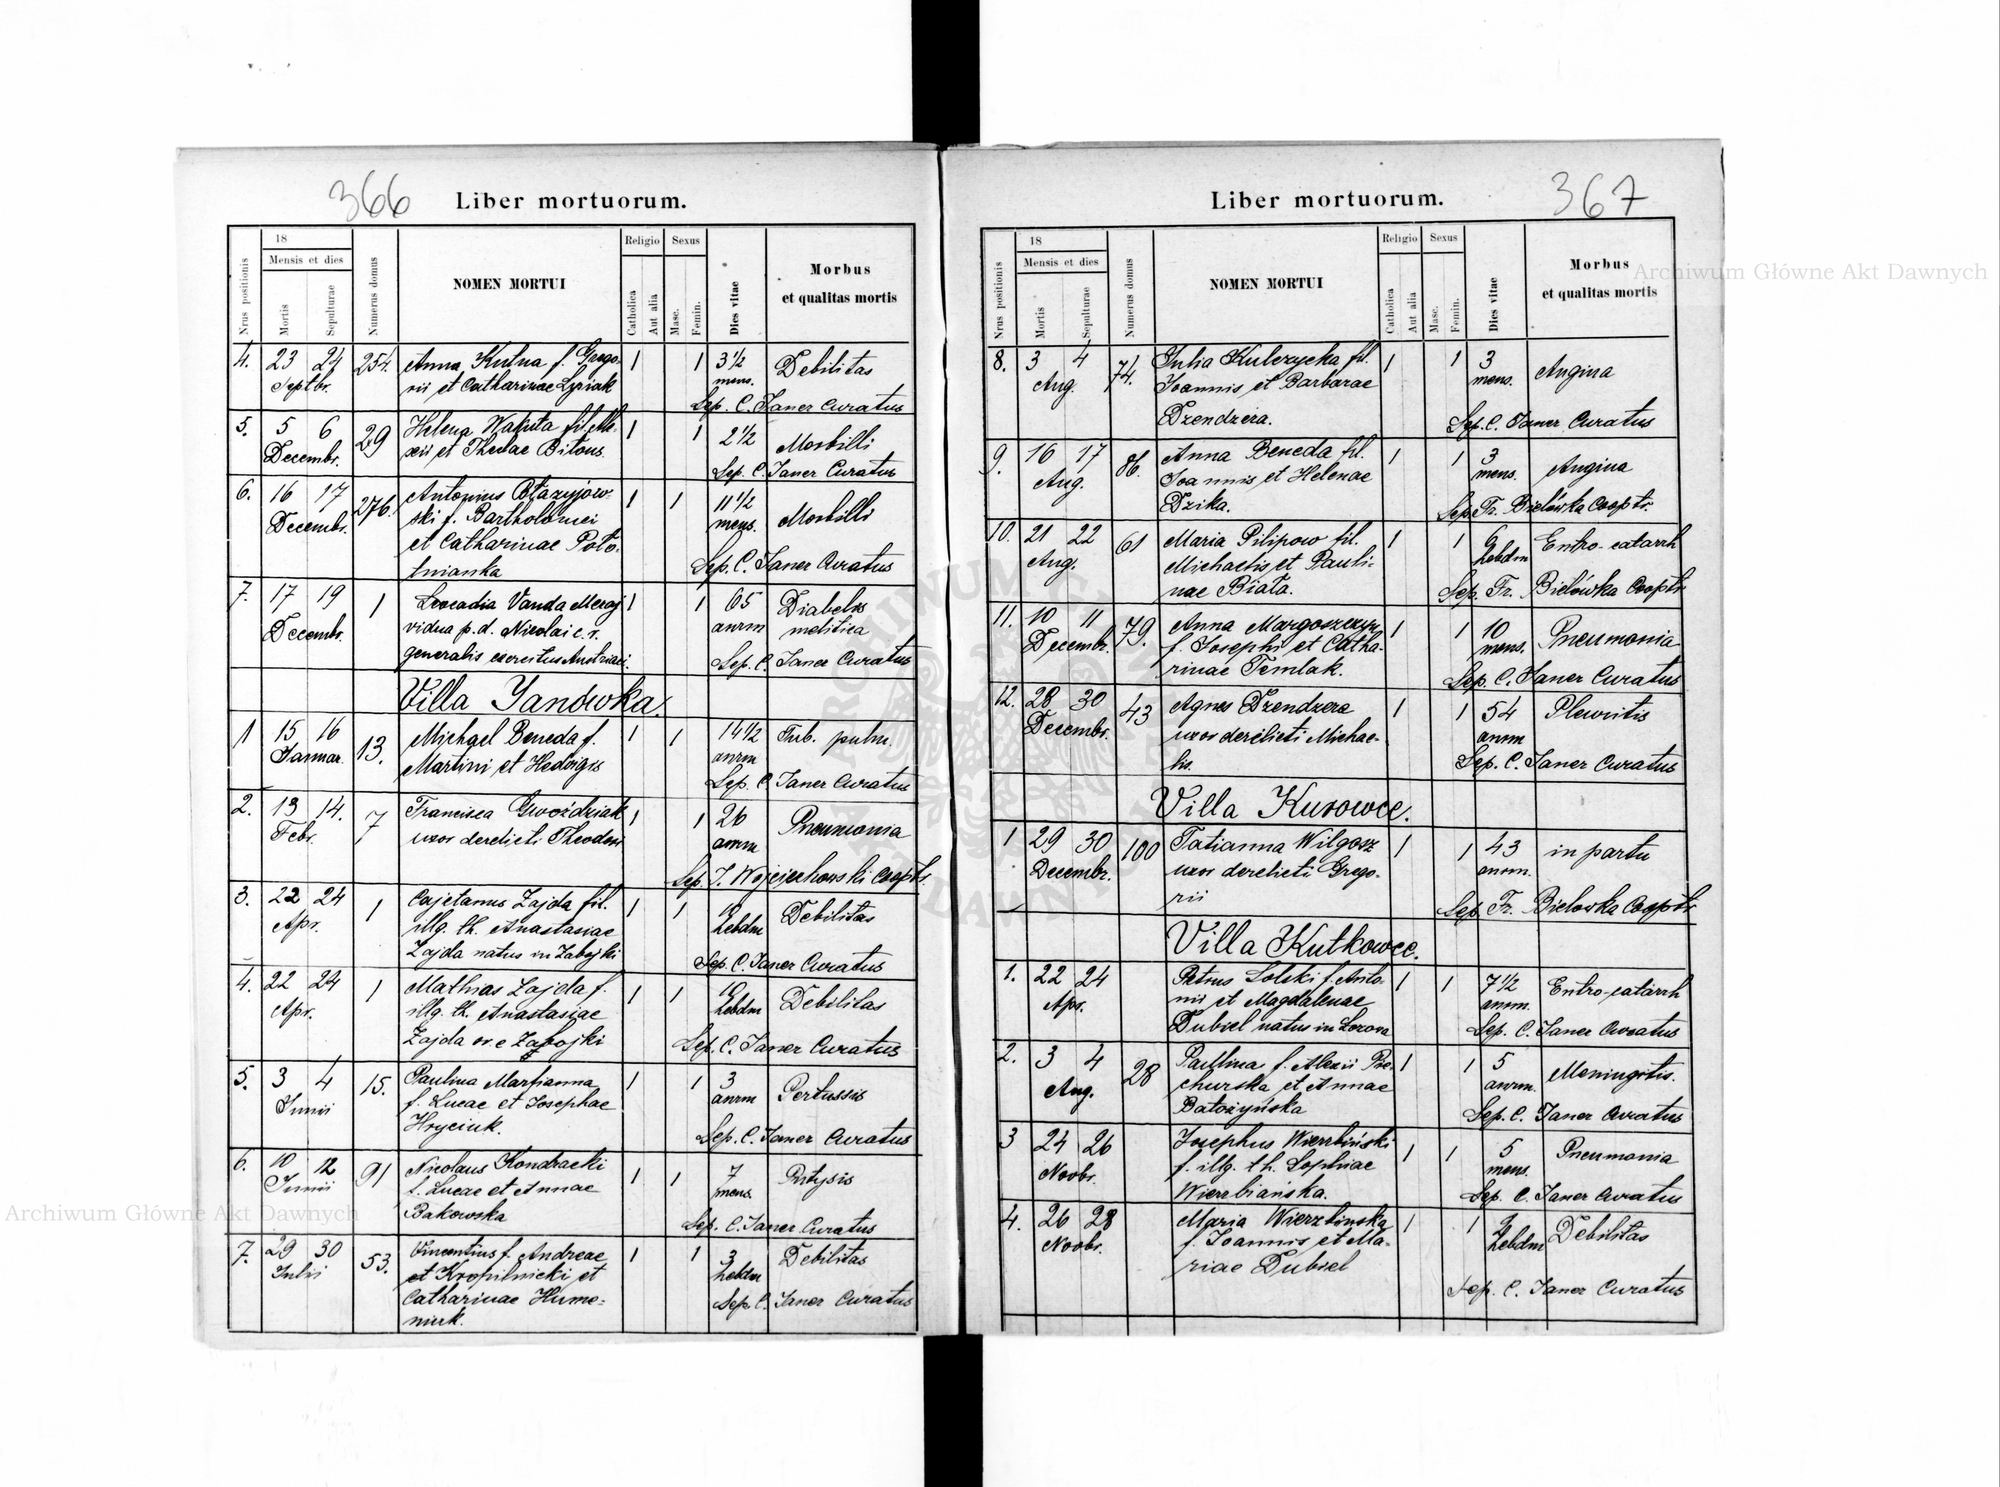 366 Liber mortuorum.
Nrus positionis
18
Mensis et dies
Mortis
Sepulturae
Numerus domus
NOMEN MORTUI
Religio
Catholica
Aut alia
Sexus
Masc.
Femin.
Dies vitae
Morbus
et qualitas mortis
4. 23 24 254. Anna Kulna f. Grego- 1 1 3½ Debilitas
Septbr. rii et Catharinae Lyriak mens.
Sep. C. Janer Curatus
5. 5 6 29 Helena fil. Ale- 1 1 2½ Morbilli
Decembr. xii et Theclae Bitous
Sep. C. Janer Curatus
6. 16 17 276. Antonius 1 1 11½ Morbilli
Decembr. ski f. Bartholomei mens.
et Catharinae Poto-
tnianka Sep. C. Janer Curatus
7. 17 19 1 Leocadia Vanda Meraj 1 1 65 Diabetes
Decembr. vidua p. d. Nicolai c. r. annm melitica
generalis exercitus Austriaci. Sep. C. Janer Curatus
Villa Janówka.
1 15 16 13. Michael Beneda f. 1 1 14½ Tub. pulm.
Januar. Martini et Hedvigis annm
Sep. C. Janer Curatus
2. 13 14. 7 Francisca Gwoździak 1 1 26 Pneumonia
Febr. uxor derelicti Theodosi annm
Sep. J. Wojciechowski Cooptr.
3. 22 24 1 Cajetanus Zajda fil. 1 1 Debilitas
Apr. illg. th. Anastasiae hebdm
Zajda natus in Zabojki
Sep. C. Janer Curatus
4. 22 24 1 Mathias Zajda f. 1 1 10 Debilitas
Apr. illg. th. Anastasiae hebdm
Zajda or. e Zabojki Sep. C. Janer Curatus
5. 3 4 15. Paulina Marfianna 1 1 3 Pertussis
Junii f. Lucae et Josephae annm
Hryciuk. Sep. C. Janer Curatus
6. 10 12 91 Nicolaus Kondracki 1 1 7 Phtysis
Junii f. Lucae et Annae mens.
Bakowska Sep. C. Janer Curatus
7. 29 30 53. Vincentius f. Andreae 1 1 3 Debilitas
Julii et Kropilnicki et hebdm
Catharinae Hume- Sep. C. Janer Curatus
niuk.
Liber mortuorum. 367
Nrus positionis
18
Mensis et dies
Mortis
Sepulturae
Numerus domus
NOMEN MORTUI
Religio
Catholica
Aut alia
Sexus
Masc.
Femin.
Dies vitae
Morbus
et qualitas mortis
8. 3 4 74. Julia Kulczycka fil. 1 1 3 Angina
Aug. Joannis et Barbarae mens.
Dzendzera. Sep. C. Janer Curatus
9. 16 17 86. Anna Beneda fil. 1 1 3 Angina
Aug. Joannis et Helenae mens.
Dzika. Sep. Fr. Bielówka Cooptr.
10. 21 22 61 Maria Pilipow fil. 1 1 6 Entro-catarrh
Aug. Michaelis et Pauli- hebdm
nae Biała. Sep. Fr. Bielówka Cooptr
11. 10 11 79. Anna 1 1 10 Pneumonia
Decembr. f. Josephi et Catha- mens.
rinae Temlak. Sep. C. Janer Curatus
12. 28 30 43 Agnes Dzendzera 1 1 54 Pleuritis
Decembr. uxor derelicti Michae- annm
lis. Sep. C. Janer Curatus
Villa Kurowce.
1 29 30 100 Tatianna Wilgosz 1 1 43 in partu
Decembr. uxor derelicti Grego- annm.
rii Sep. Fr. Bielowka Cooptr
Villa Kutkowce.
1. 22 24 Petrus Solski f. Anto- 1 1 7½ Entro-catarrh
Apr. nii et Magdalenae annm.
Dubiel natus in Lozova Sep. C. Janer Curatus
2. 3 4 28 Paulina f. Alexii Pie- 1 1 5 Meningitis.
Aug. churska et Annae annm.
Batożyńska Sep. C. Janer Curatus
3 24 26 Josephus Wierzbiński 1 1 5 Pneumonia
Novbr. f. illg. th. Sophiae mens.
Wierzbiańska. Sep. C. Janer Curatus
4. 26 28 Maria Wierzbinska 1 1 Debilitas
Novbr. f. Joannis et Ma- hebdm
riae Dubiel
Sep. C. Janer Curatus
Archiwum Główne Akt Dawnych
Archiwum Główne Akt Dawnych